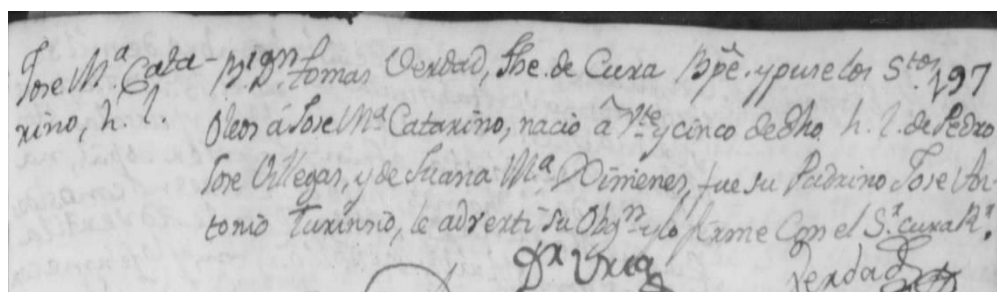 Jose Mª Cata-
rino, h. l.
Br. Dn. tomas Verdad, The. de Cura Bpé. y puse los Stos. 197
Oleos á Jose Mª Catarino, nació á Vte y cinco de dho. h. l. de Pedro
Jose Villegas, y de Juana Mª Ximenes, fue su Padrino Jose An-
tonio, le adverti su Obgn. y lo firmé Con el Sr. cura Rr.
Dr Uria
Verdad